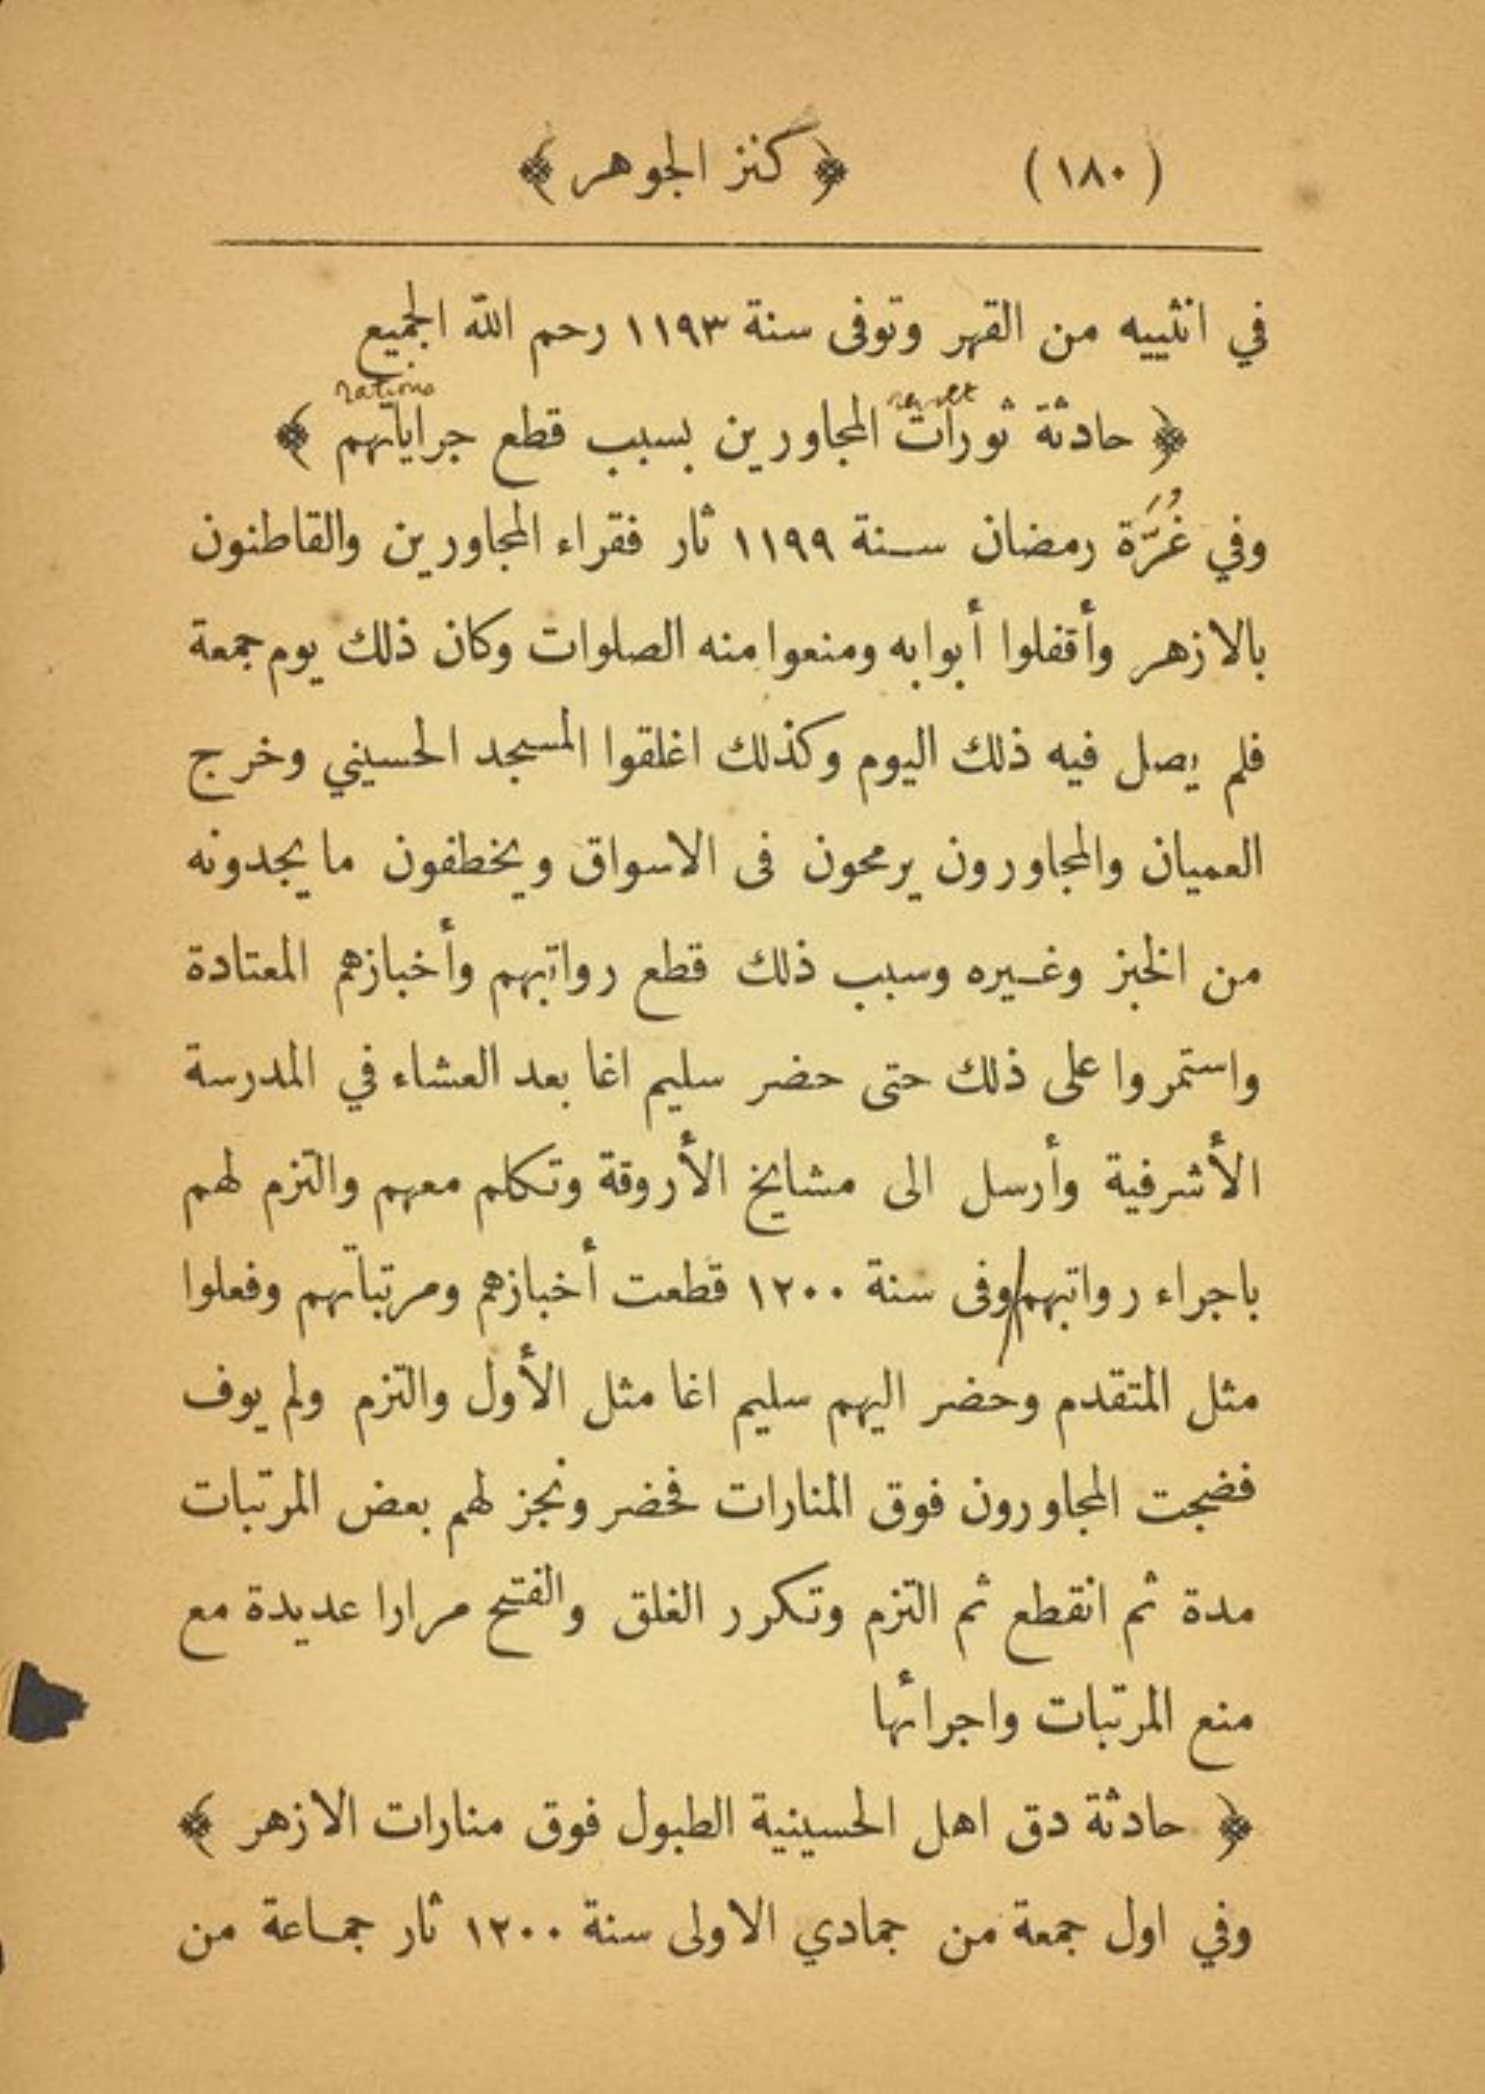 (١٨٠) ﴿ كنز الجوهر ﴾
في انثييه من القهر وتوفى سنة ١١٩٣ رحم الله الجميع
revolt rations
﴿ حادثة ثورات المجاورين بسبب قطع جراياتهم ﴾
وفي غُرَّة رمضان سنة ١١٩٩ ثار فقراء المجاورين والقاطنون
بالازهر وأقفلوا أبوابه ومنعوا منه الصلوات وكان ذلك يوم جمعة
فلم يصل فيه ذلك اليوم وكذلك اغلقوا المسجد الحسيني وخرج
العميان والمجاورون يرمحون فى الاسواق ويخطفون ما يجدونه
من الخبز وغيره وسبب ذلك قطع رواتبهم وأخبازهم المعتادة
واستمروا على ذلك حتى حضر سليم اغا بعد العشاء في المدرسة
الأشرفية وأرسل الى مشايخ الأروقة وتكلم معهم والتزم لهم
باجراء رواتبهم وفى سنة ١٢٠٠ قطعت أخبازهم ومرتباتهم وفعلوا
مثل المتقدم وحضر اليهم سليم اغا مثل الأول والتزم ولم يوف
فضجت المجاورون فوق المنارات فحضر ونجز لهم بعض المرتبات
مدة ثم انقطع ثم التزم وتكرر الغلق والفتح مرارا عديدة مع
منع المرتبات واجرائها
﴿ حادثة دق اهل الحسينية الطبول فوق منارات الازهر ﴾
وفي اول جمعة من جمادي الاولى سنة ١٢٠٠ ثار جماعة من